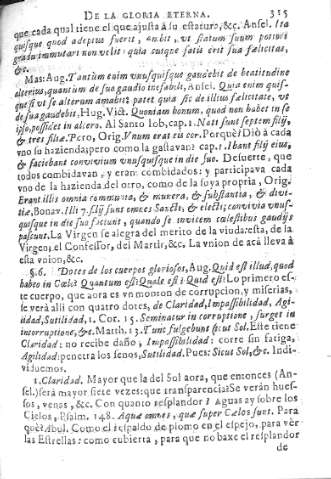 DE LA GLORIA ETERNA. 315
que cada qual tiene el que ajusta à su estatura, &c. Ansel. Ita
quisque quod adeptus fuerit, ambit, vt statum suum potiori
gradu immutari non velit: quia cuique satis erit sua fælicitas,
&c.
Mas: Aug. Tantùm enim vnusquisque gaudebit de beatitudine
alterius, quantùm de sua gaudio ineffabili, Ansel. Quia enim quis-
que si vt se alterum amabit: patet quia sic de illius fælicitate, vt
de sua gaudebit, Hug. Vict. Quoniam bonum, quod non habet in se
ipso, possidet in altero. Al Santo Iob, cap. 1. Nati sunt septem filij,
& tres filiæ. Pero, Orig. Vnum erat eis cor. Porquè? Diò à cada
vno su hazienda; pero como la gastavan? cap. 1. Ibant filij eius,
& faciebant convivium vnusquisque in die suo. De suerte, que
todos combidavan, y eran combidados: y participava cada
vno de la hazienda del otro, como de la suya propria, Orig.
Erant illis omnia communia, & munera, & substantia, & divi-
tiæ, Bonav. Illi 7. filij sunt omnes Sancti, & electi; convivia vnus-
quisque in die sua faciunt, quando se invicem cælestibus gaudijs
pascunt. La Virgen se alegra del merito de la viuda: esta, de la
Virgen; el Confessor, del Martir, &c. La vnion de acà lleva à
esta vnion, &c.
§. 6. Dotes de los cuerpos gloriosos, Aug. Quid est illud, quod
habeo in Cælo? Quantum est? Quale est? Quid est? Lo primero es-
te cuerpo, que aora es vn monton de corrupcion, y miserias,
se verà alli con quatro dotes, de Claridad, Impassibilidad, Agi-
lidad, Sutilidad, 1. Cor. 15. Seminatur in corruptione, surget in
incorruptione, &c. Matth. 13. Tunc fulgebunt sicut Sol. Este tiene
Claridad: no recibe daño, Impassibilidad: corre sin fatiga,
Agilidad: penetra los senos, Sutilidad. Pues: Sicut Sol, &c. Indi-
viduemos.
1. Claridad. Mayor que la del Sol aora, que entonces (An-
sel.) serà mayor siete vezes: què transparencia? Se veràn hues-
sos, venas, &c. Con quanto resplandor? Aguas ay sobre los
Cielos, Psalm. 148. Aquæ omnes, quæ super Cælos sunt. Para
què? Abul. Como el respaldo de plomo en el espejo, para vèr
las Estrellas: como cubierta, para que no baxe el resplandor
de